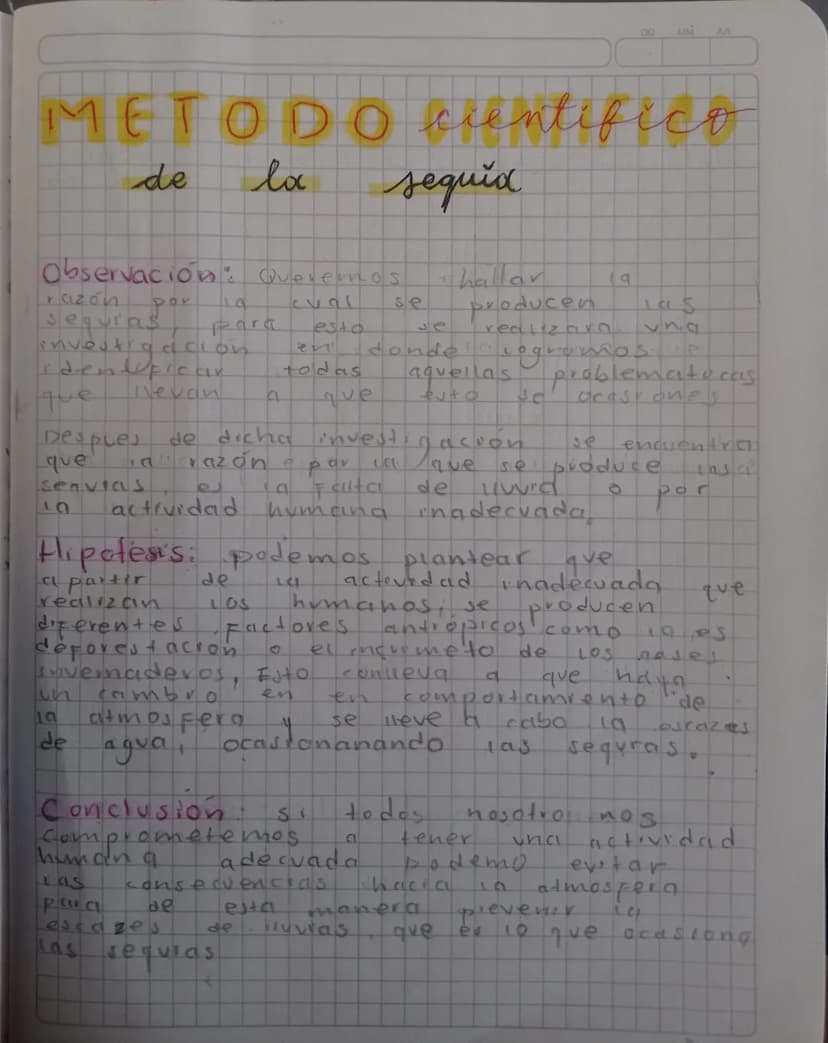 METODO cientifico
de la sequía
Observación: Queremos hallar la
razón por la cual se producen las
sequias, para esto se realizara una
investigación en donde logremos
identificar todas aquellas problematicas
que llevan a que esto se ocasiones
Despues de dicha investigación se encuentra
que la razón por la que se produce las
sequias, es la falta de lluvia o por
la actividad humana inadecuada.
Hipotesis: podemos plantear que
a partir de la actividad inadecuada que
realizan los humanos, se producen
diferentes factores antrópicos como la es
deforestación o el incremeto de los gases
invernaderos, Esto conlleva a que haya
un cambio en en comportamiento de
la atmosfera y se lleve a cabo la escazes
de agua, ocasionanando las sequias.
Conclusión: si todos nosotro nos
comprometemos a tener una actividad
humana adecuada podemo evitar
las consecuencias hacia la atmosfera
para de esta manera prevenir la
escazes de lluvias que es lo que ocasiona
las sequias